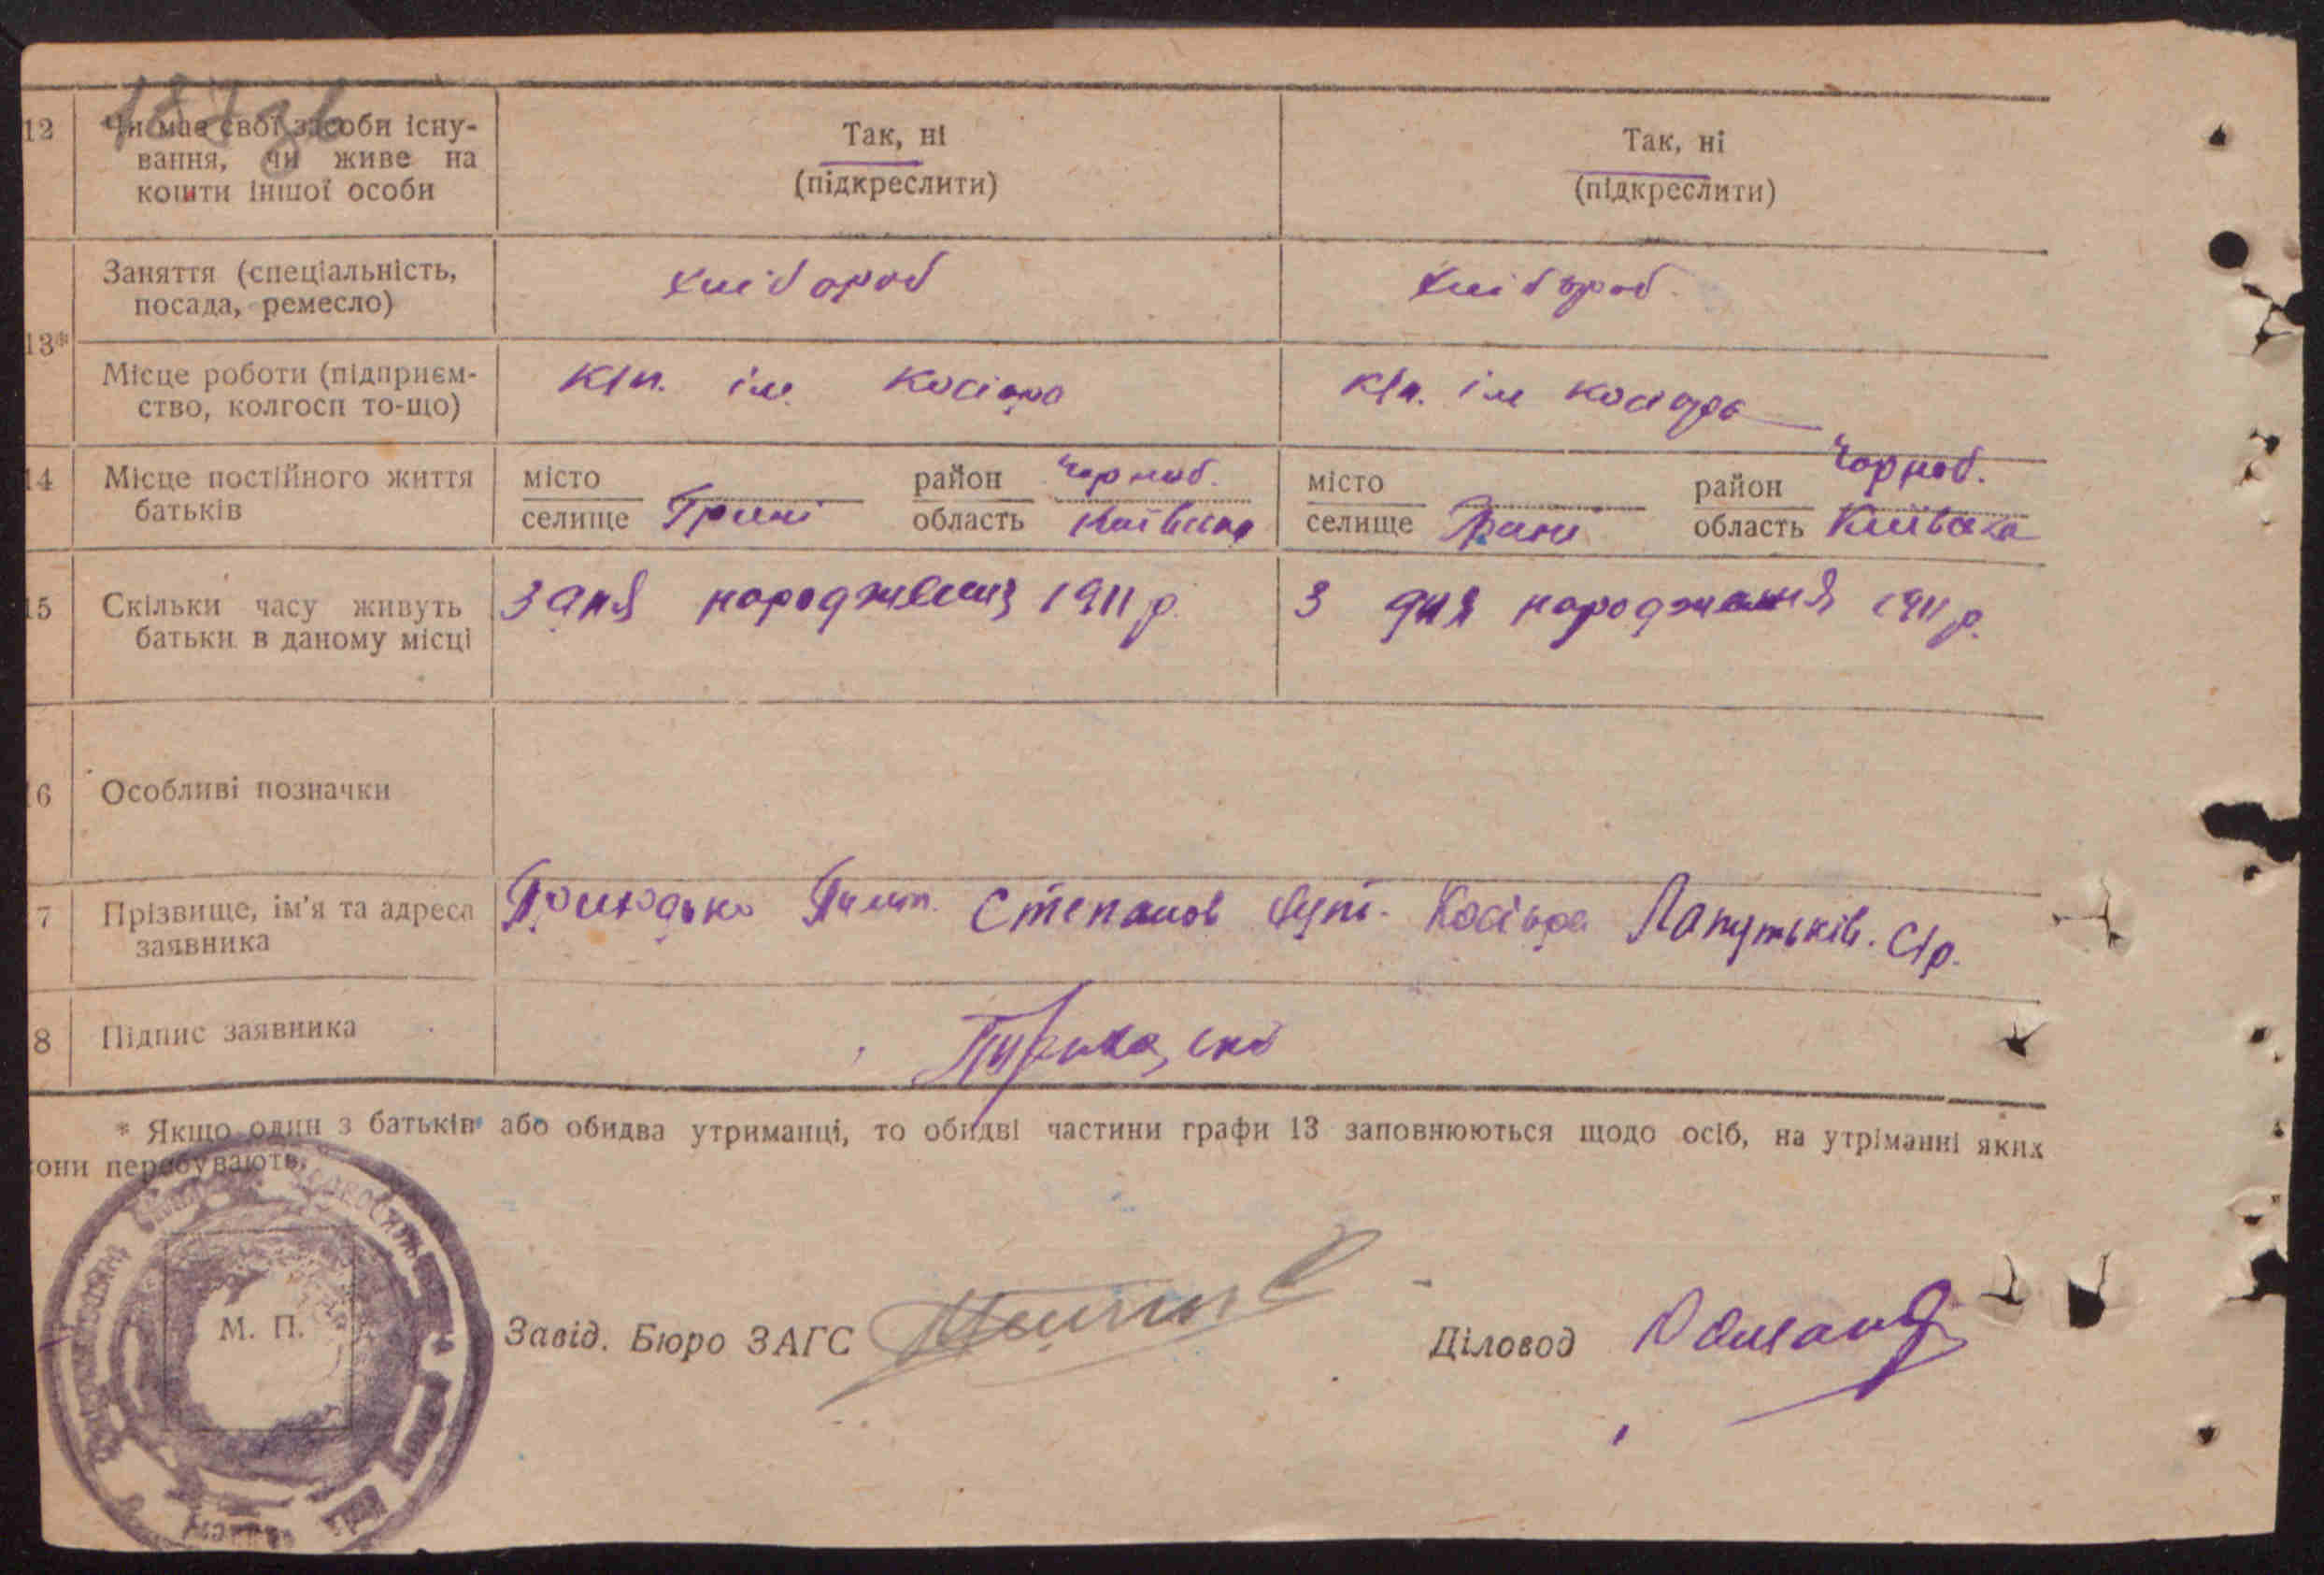 12 Чи має свої засоби існу-
вання, чи живе на
кошти іншої особи
Так, ні
(підкреслити)
Так, ні
(підкреслити)
13*
Заняття (спеціальність,
посада, ремесло)
хлібороб
хлібороб
Місце роботи (підприєм-
ство, колгосп то-що)
к/п. ім. Косіора
к/п. ім Косіора
14 Місце постійного життя
батьків
місто
селище
район Чорноб.
область Київська
місто
селище
район Чорноб.
область Київська
15 Скільки часу живуть
батьки в даному місці
З дня народження 1911 р.
З дня народження 1911 р.
16 Особливі позначки
7 Прізвище, ім'я та адреса
заявника
Степанов Косіора С/р.
8 Підпис заявника
* Якщо один з батьків або обидва утриманці, то обидві частини графи 13 заповнюються щодо осіб, на утріманні яких
вони перебувають.
М. П.
Завід. Бюро ЗАГС
Діловод